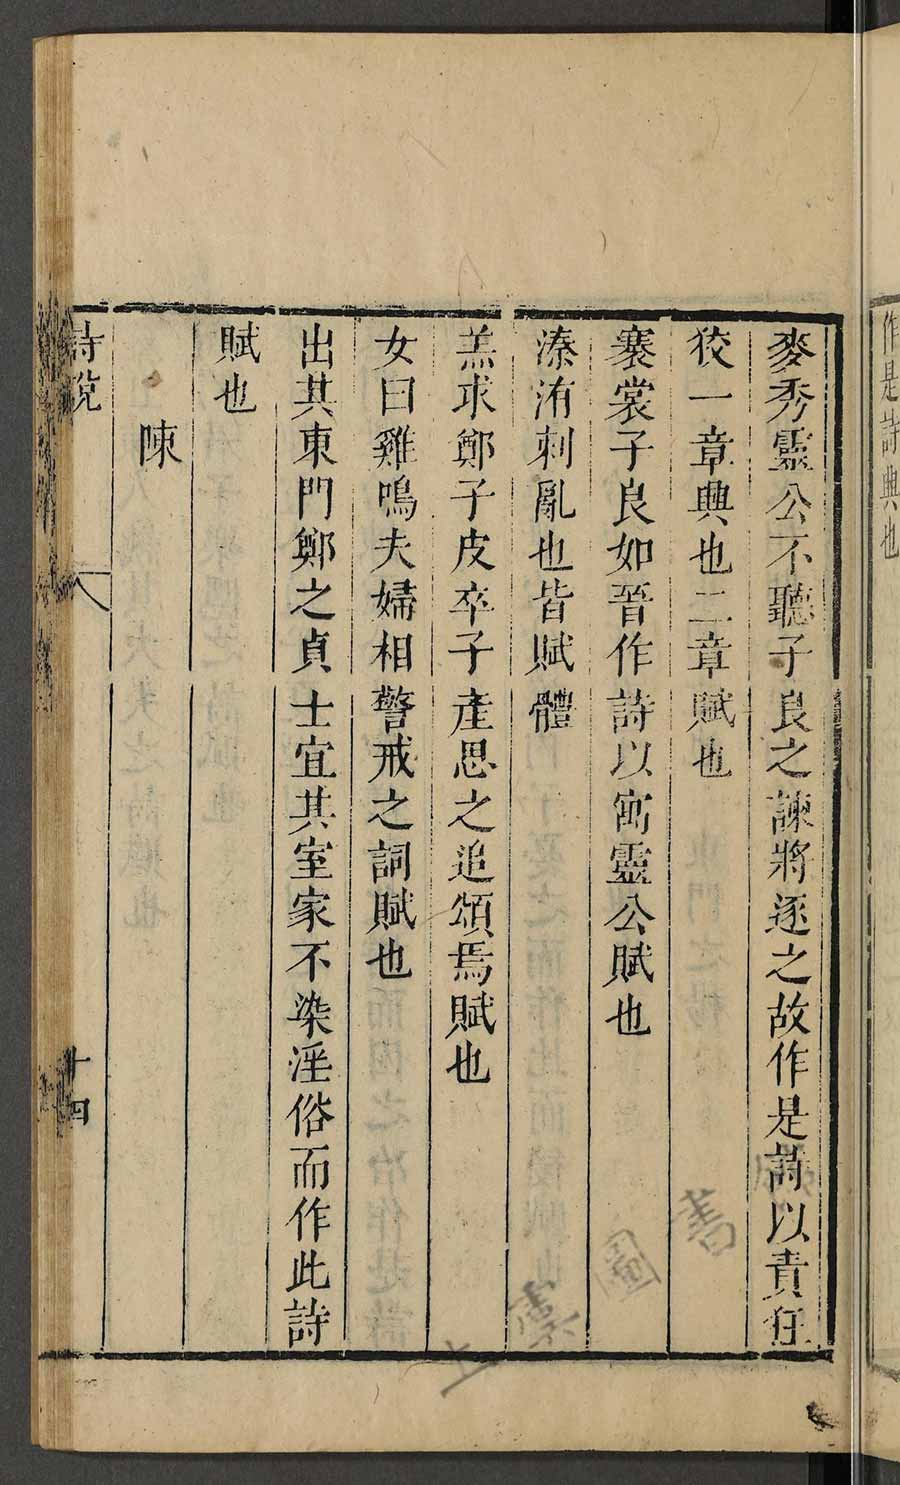 作是詩興也
麥秀靈公不聽子良之諫將逐之故作是詩以責狂
狡一章興也二章賦也
褰裳子良如晉作詩以寓靈公賦也
溱洧刺亂也皆賦體
羔求鄭子皮卒子產思之追頌焉賦也
女曰雞鳴夫婦相警戒之詞賦也
出其東門鄭之貞士宜其室家不染淫俗而作此詩
賦也
陳
詩說
十四